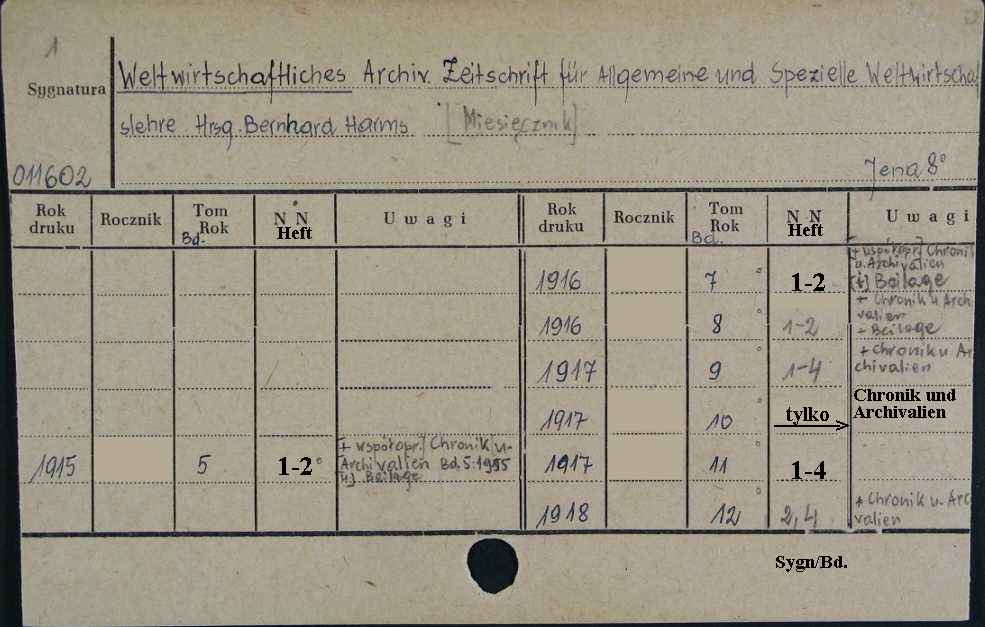 1
Sygnatura
Weltwirtschaftliches Archiv. Zeitschrift für Allgemeine und Spezielle Weltwirtscha
slehre Hrsg. Bernhard Harms [Miesięcznik]
011602
Jena 8°
Rok druku Rocznik Tom Rok Bd. N N Heft Uwagi Rok druku Rocznik Tom Rok Bd. N N Heft Uwagi
1916 7 ° 1-2 + współopr. Chronik u. Archivalien [+] Beilage
1916 8 ° 1-2 + Chronik u Archivalien - Beilage
1917 9 ° 1-4 + Chronik u Archivalien
1917 10 ° tylko Chronik und Archivalien
1915 5 1-2 ° + współopr. Chronik u. Archivalien Bd. 5:1915 Beilage 1917 11 ° 1-4
1918 12 ° 2,4 + Chronik u. Archivalien
Sygn/Bd.